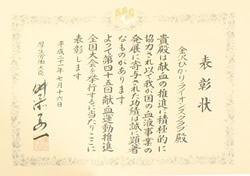 表彰状
金沢ひかりライオンズクラブ殿
貴殿は献血の推進に積極的に
協力され以て我が国の血液事業の
発展に寄与された功績は誠に顕著
なものがあります
よって第四十五回献血運動推進
全国大会を挙行するに当たりここに
表彰します
平成二十一年七月十六日
厚生労働大臣